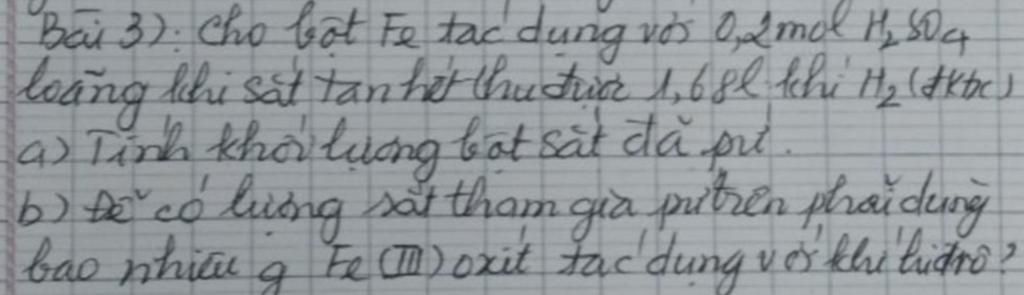 Bài 3): Cho bột Fe tác dụng với 0,2mol H₂SO₄
loãng khi sắt tan hết thu được 1,68l khí H₂ (đktc)
a) Tính khối lượng bột sắt đã pứ.
b) Để có lượng sắt tham gia pứ trên phải dùng
bao nhiêu g Fe (III) oxit tác dụng với khí hiđrô?